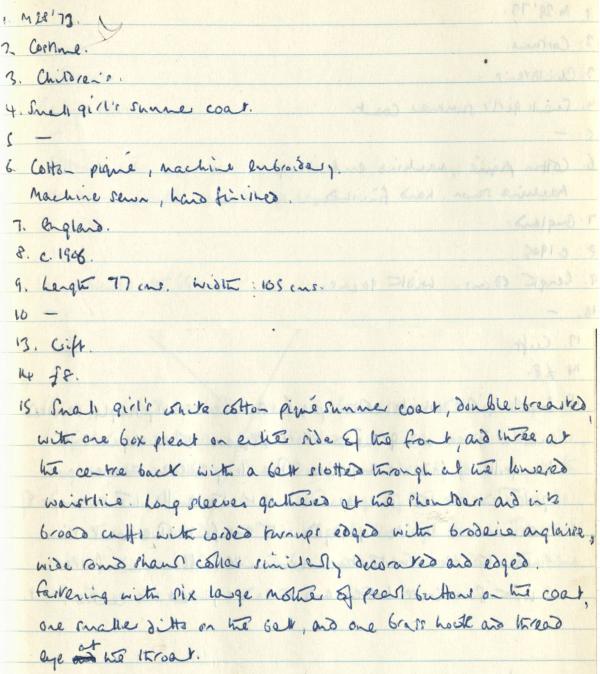 1. M28'73.
2. Costume.
3. Children's.
4. Small girl's summer coat.
5 —
6. Cotton piqué, machine embroidery.
Machine sewn, hand finished.
7. England.
8. c. 1908
9. Length 77 cms. Width: 105 cms.
10 —
13. Gift.
14 £8.
15 Small girl's white cotton piqué summer coat, double-breasted,
with one box pleat on either side of the front, and three at
the centre back with a belt slotted through at the lowered
waistline. Long sleeves gathered at the shoulders and into
broad cuffs with corded turnups edged with broderie anglaise,
wide round shawl collar similarly decorated and edged.
Fastening with six large mother of pearl buttons on the coat,
one smaller ditto on the belt, and one brass hook and thread
eye at the throat.